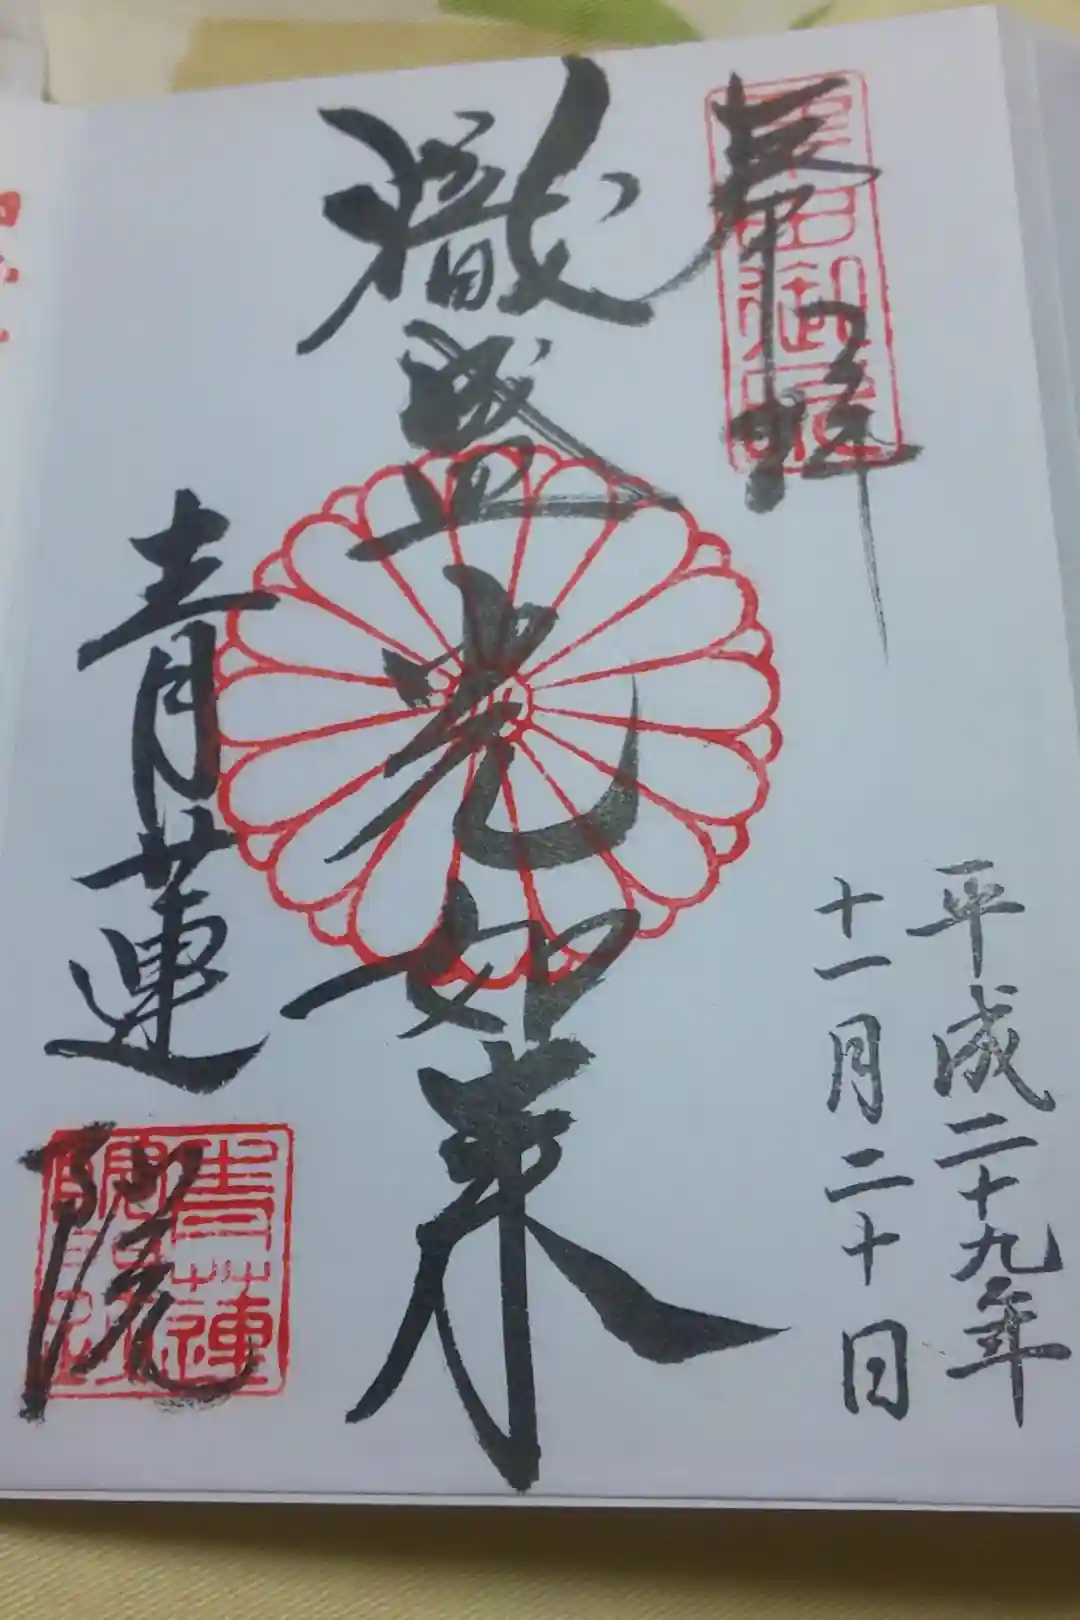 奉拝
平成二十九年
十一月二十日
熾盛光如来
青蓮院